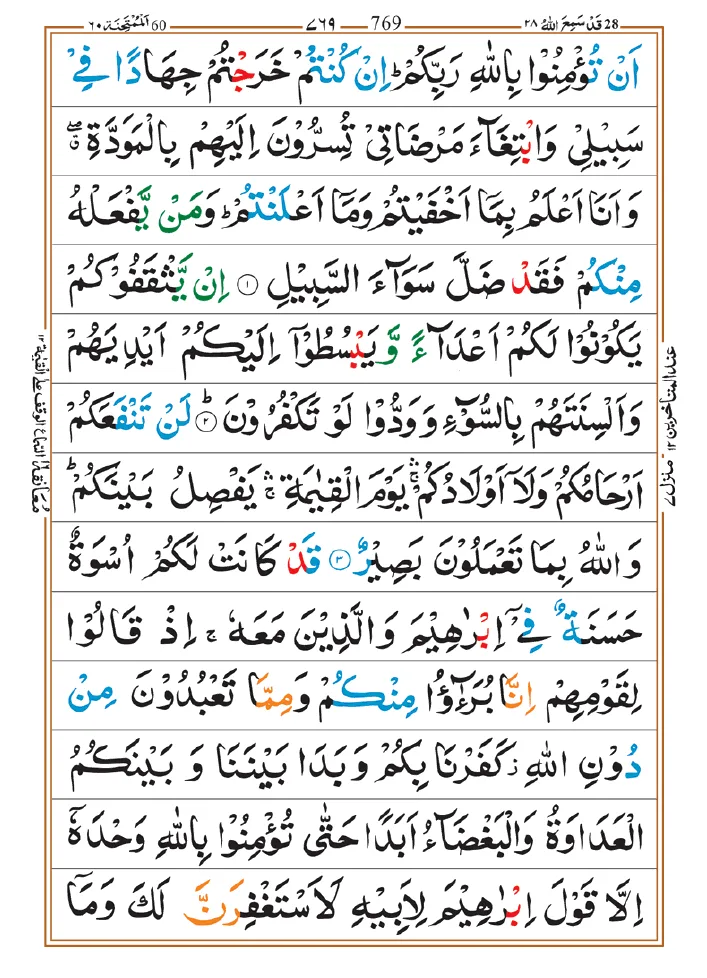 28 قَدْ سَمِعَ اللّٰهُ ٢٨
769 ٧٦٩
60 اَلْمُمْتَحِنَة ٦٠
اَنْ تُؤْمِنُوْا بِاللّٰهِ رَبِّكُمْ ؕ اِنْ كُنْتُمْ خَرَجْتُمْ جِهَادًا فِیْ
سَبِیْلِیْ وَابْتِغَآءَ مَرْضَاتِیْ تُسِرُّوْنَ اِلَیْهِمْ بِالْمَوَدَّةِ ۖۗ
وَاَنَا اَعْلَمُ بِمَاۤ اَخْفَیْتُمْ وَمَاۤ اَعْلَنْتُمْ ؕ وَمَنْ یَّفْعَلْهُ
مِنْكُمْ فَقَدْ ضَلَّ سَوَآءَ السَّبِیْلِ ۝۱ اِنْ یَّثْقَفُوْكُمْ
یَكُوْنُوْا لَكُمْ اَعْدَآءً وَّیَبْسُطُوْۤا اِلَیْكُمْ اَیْدِیَهُمْ
وَاَلْسِنَتَهُمْ بِالسُّوْٓءِ وَوَدُّوْا لَوْ تَكْفُرُوْنَ ۝۲ؕ لَنْ تَنْفَعَكُمْ
اَرْحَامُكُمْ وَلَاۤ اَوْلَادُكُمْ ۛۚ یَوْمَ الْقِیٰمَةِ ۛۚ یَفْصِلُ بَیْنَكُمْ ؕ
وَاللّٰهُ بِمَا تَعْمَلُوْنَ بَصِیْرٌ ۝۳ قَدْ كَانَتْ لَكُمْ اُسْوَةٌ
حَسَنَةٌ فِیْۤ اِبْرٰهِیْمَ وَالَّذِیْنَ مَعَهٗ ۚ اِذْ قَالُوْا
لِقَوْمِهِمْ اِنَّا بُرَءٰٓؤُا مِنْكُمْ وَمِمَّا تَعْبُدُوْنَ مِنْ
دُوْنِ اللّٰهِ ؗ كَفَرْنَا بِكُمْ وَبَدَا بَیْنَنَا وَبَیْنَكُمُ
الْعَدَاوَةُ وَالْبَغْضَآءُ اَبَدًا حَتّٰی تُؤْمِنُوْا بِاللّٰهِ وَحْدَهٗۤ
اِلَّا قَوْلَ اِبْرٰهِیْمَ لِاَبِیْهِ لَاَسْتَغْفِرَنَّ لَكَ وَمَاۤ
عند المتاخرین ١٢ منزل ٧